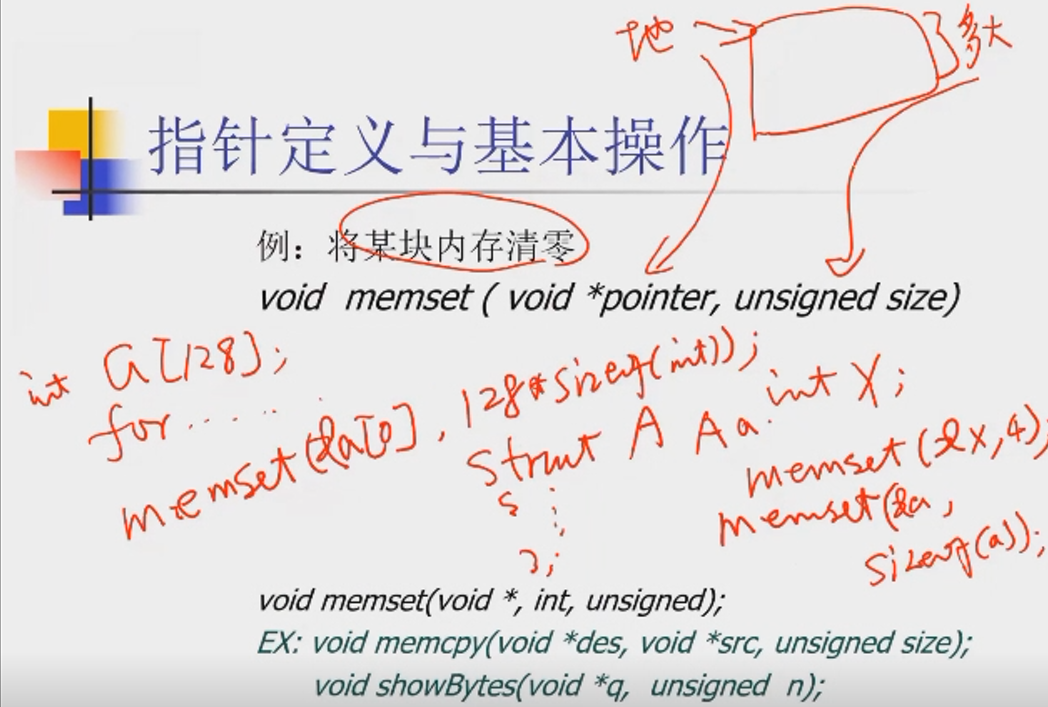 地 多大
指针定义与基本操作
例：将某块内存清零
void memset ( void *pointer, unsigned size)
int a[128];
for......
memset(&a[0], 128*sizeof(int));
struct A
{
⋮
};
A a.
int X;
memset(&x,4);
memset(&a,
sizeof(a));
void memset(void *, int, unsigned);
EX: void memcpy(void *des, void *src, unsigned size);
void showBytes(void *q, unsigned n);